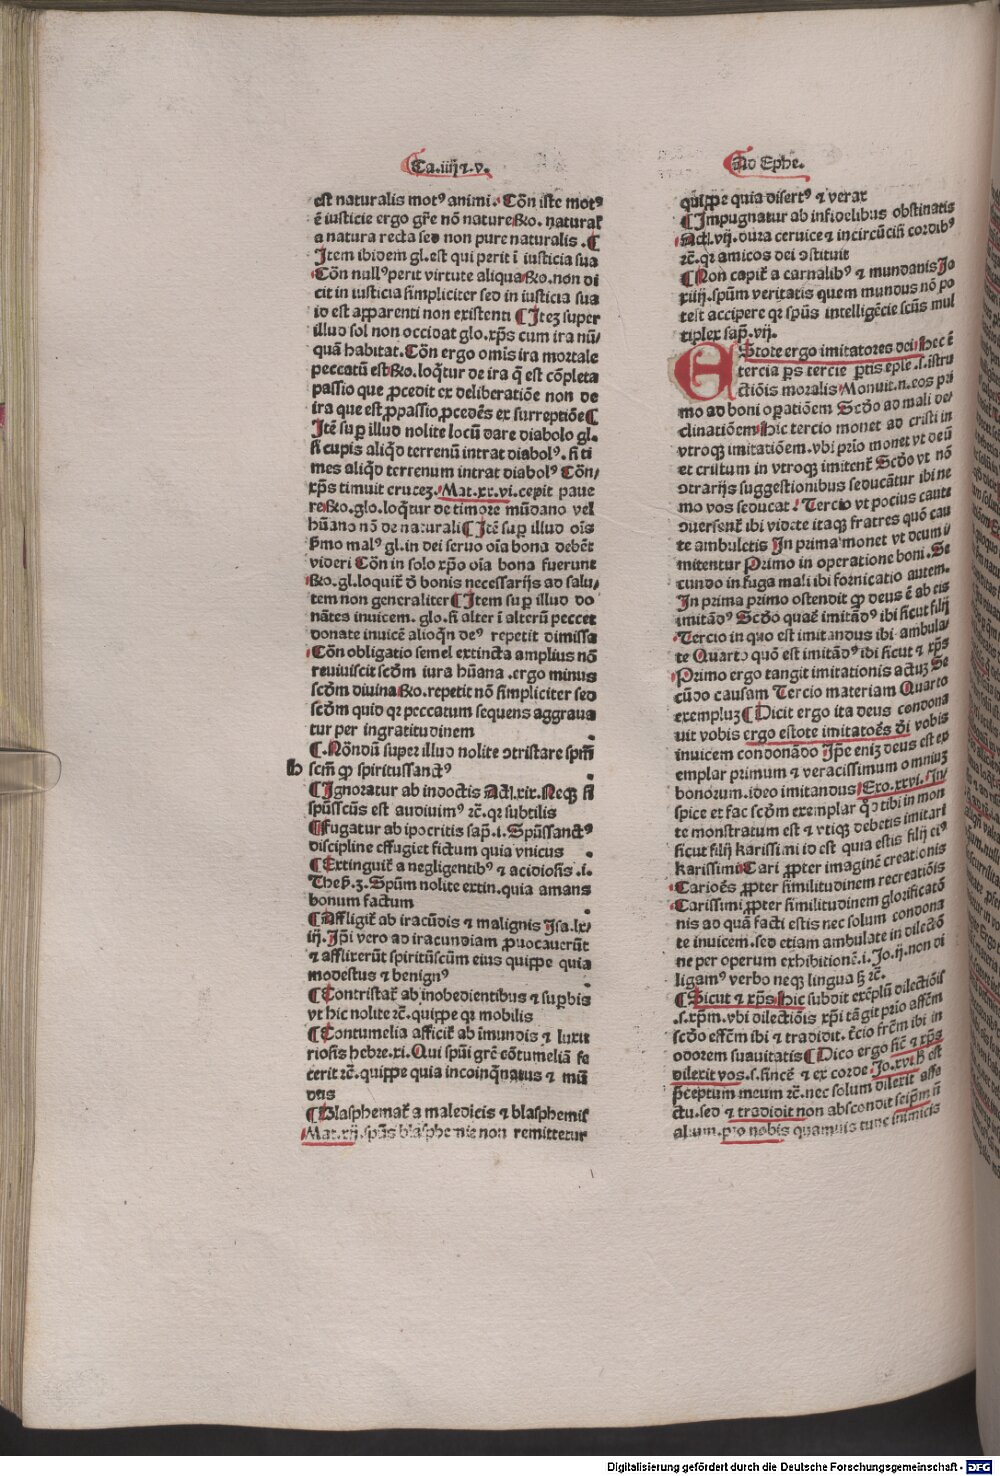 Ca.iiij ⁊.v.
est naturalis motꝰ animi. Cōn iste motꝰ
ē iusticie ergo gr̄e nō nature Ro. naturał
a natura recta sed non pure naturalis . ¶
Item ibidem gl. est qui perit ī iusticia sua
Cōn nullꝰ perit virtute aliqua Ro. non di
cit in iusticia simpliciter sed in iusticia sua
id est apparenti non existenti ¶ Itez super
illud sol non occidat glo. xp̄s cum ira nū/
quā habitat. Cōn ergo omīs ira mortale
peccatū est Ro. loqr̄tur de ira q̄ est cōpleta
passio que ꝓcedit ex deliberatiōe non de
ira que est ꝓpassio ꝓcedēs ex surreptiōe ¶
Itē suꝑ illud nolite locū dare diabolo gl.
si cupis aliqd̄ terrenū intrat diabolꝰ. si ti
mes aliqd̄ terrenum intrat diabolꝰ Cōn/
xp̄s timuit crucez. Mat.xx.vi. cepit paue
re Ro. glo. loqr̄tur de timore mūdano vel
hūano nō de naturali ¶ Itē suꝑ illud oīs
ẜmo malꝰ gl. in dei seruo oīa bona debēt
videri Cōn in solo xp̄o oīa bona fuerunt
Ro. gl. loquit̄ d̄ bonis necessarijs ad salu/
tem non generaliter ¶ Item suꝑ illud do
nātes inuicem. glo. si alter ī alterū peccet
donate inuicē alioqn̄ deꝰ repetit dimissa
Cōn obligatio semel extincta amplius nō
reuiuiscit scd̄m iura hūana . ergo minus
scd̄m diuina Ro. repetit nō simpliciter sed
scd̄m quid qꝛ peccatum sequens aggraua
tur per ingratitudinem
¶ Nōndū super illud nolite ꝯtristare spm̄
b scm̄ ꝙ spiritussanctꝰ
¶ Ignoratur ab indoctis Act.xix. Neqꝫ si
spūsscūs est audiuimꝰ ⁊c. qꝛ subtilis
¶ Fugatur ab ipocritis sap̄.i. Spūssanctꝰ
discipline effugiet fictum quia vnicus
¶ Extinguit̄ a negligentibꝰ ⁊ acidiosis .i.
Theß.3. Spūm nolite extin. quia amans
bonum factum
¶ Affligit̄ ab iracūdis ⁊ malignis Isa.lx/
iij. Ip̄i vero ad iracundiam ꝓuocauerūt
⁊ afflixerūt spiritūscūm eius quippe quia
modestus ⁊ benignꝰ
¶ Contristat̄ ab inobedientibus ⁊ suꝑbis
vt hic nolite ⁊c. quippe qꝛ mobilis
¶ Contumelia afficit̄ ab īmundis ⁊ luxu
riosis hebre.xi. Qui spūi gr̄e cōtumeliā fe
cerit ⁊c. quippe quia incoinqn̄atus ⁊ mū
dus
¶ Blasphemat̄ a maledicis ⁊ blasphemis
Mat.xij. spūs blasphemie non remittetur
Ad Ephe.
quippe quia disertꝰ ⁊ verax
¶ Impugnatur ab infidelibus obstinatis
Act.vij. dura ceruice ⁊ incircūcisi cordibꝰ
⁊c. qꝛ amicos dei ꝯstituit
¶ Non capit̄ a carnalibꝰ ⁊ mundanis Jo
xiiij. spūm veritatis quem mundus nō po
test accipere qꝛ spūs intelligēcie scūs mul
tiplex sap̄.vij.
EStote ergo imitatores dei Hec ē
tercia ꝑs tercie ꝑtis eple .s. istru
ctiōis moralis Monuit .n. eos pri
mo ad boni oꝑatiōem Scd̄o ad mali de/
clinatiōem Hic tercio monet ad cristi in
vtroqꝫ imitatiōem. vbi prīo monet vt deū
et cristum in vtroqꝫ imitent̄ Scd̄o vt nō
ꝯtrarijs suggestionibus seducātur ibi ne
mo vos seducat. Tercio vt pocius caute
ꝯuersent̄ ibi videte itaqꝫ fratres quō cau
te ambuletis In prima monet vt deum i/
mitentur Primo in operatione boni. Se
cundo in fuga mali ibi fornicatio autem.
In prima primo ostendit ꝙ deus ē ab eis
imitādꝰ Scd̄o quaē imitādꝰ ibi sicut filij
Tercio in quo est imitandus ibi ambula/
te Quarto quō est imitādꝰ ibi sicut ⁊ xp̄s
Primo ergo tangit imitationis actuz Se
cūdo causam Tercio materiam Quarto
exempluz ¶ Dicit ergo ita deus condona
uit vobis ergo estote imitatoēs d̄i vobis
inuicem condonādo Ip̄e eniz deus est ex
emplar primum ⁊ veracissimum omniuz
bonorum. ideo imitandus Exo.xxvi. In/
spice et fac scd̄m exemplar qd̄ tibi in mon
te monstratum est ⁊ vtiqꝫ debetis imitari
sicut filij karissimi id est quia estis filij eiꝰ
karissimi Cari ꝓpter imaginē creationis
Carioēs ꝓpter similitudinem recreatiōis
Carissimi ꝓpter similitudinem glorificatō
nis ad quā facti estis nec solum condona
te inuicem. sed etiam ambulate in dilectō
ne per operum exhibitionē. i. Jo.ij. non di
ligamꝰ verbo neqꝫ lingua ꝫ ⁊c.
¶ Sicut ⁊ xp̄s Hic subdit exēplū dilectiōis
.s. xp̄m. vbi dilectiōis xp̄i tāgit prīo affēm
scd̄o effēm ibi ⁊ tradidit. t̄cio fr̄em ibi in
odorem suauitatis ¶ Dico ergo sic̄ ⁊ xp̄s
dilexit vos .s. sincē ⁊ ex corde. Jo.xvi. H̄ est
p̄ceptum meum ⁊c. nec solum dilexit affe
ctu. sed ⁊ tradidit non abscondit seip̄m n̄
alium. pro nobis quamuis tunc inimicis
Digitalisierung gefördert durch die Deutsche Forschungsgemeinschaft - DFG